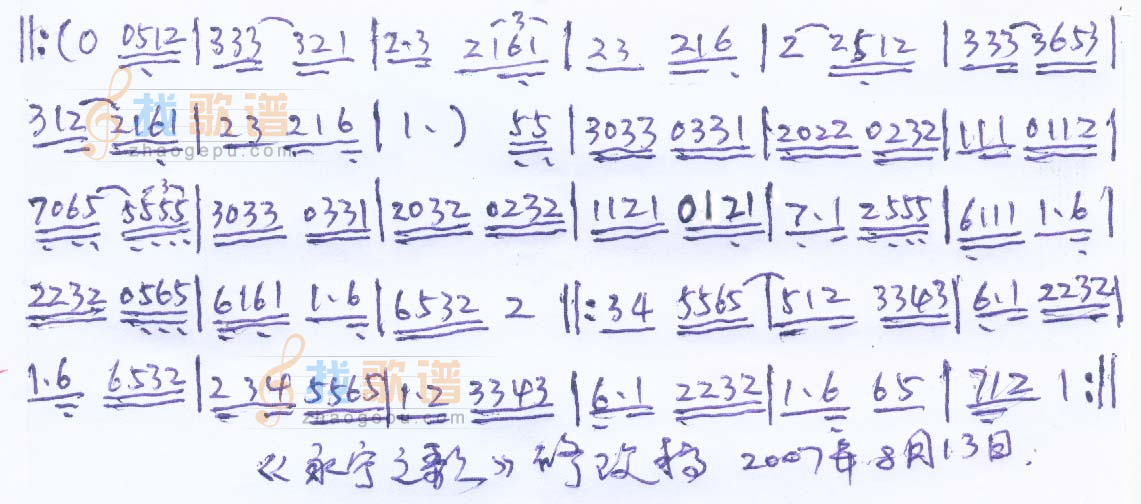 ‖:(0 0512|333 321|2·3 2161|23 216|2 2512|333 3653|
312 2161|23 216|1·) 55|3033 0331|2022 0232|111 0112|
7065 5555|3033 0331|2032 0232|1121 0121|7·1 2555|6111 1·6|
2232 0565|6161 1·6|6532 2‖:34 5565|512 3343|6·1 2232|
1·6 6532|2 34 5565|1·2 3343|6·1 2232|1·6 65|712 1:‖
《永宁之歌》修改稿 2007年8月13日.
找歌谱
zhaogepu.com
找歌谱
zhaogepu.com